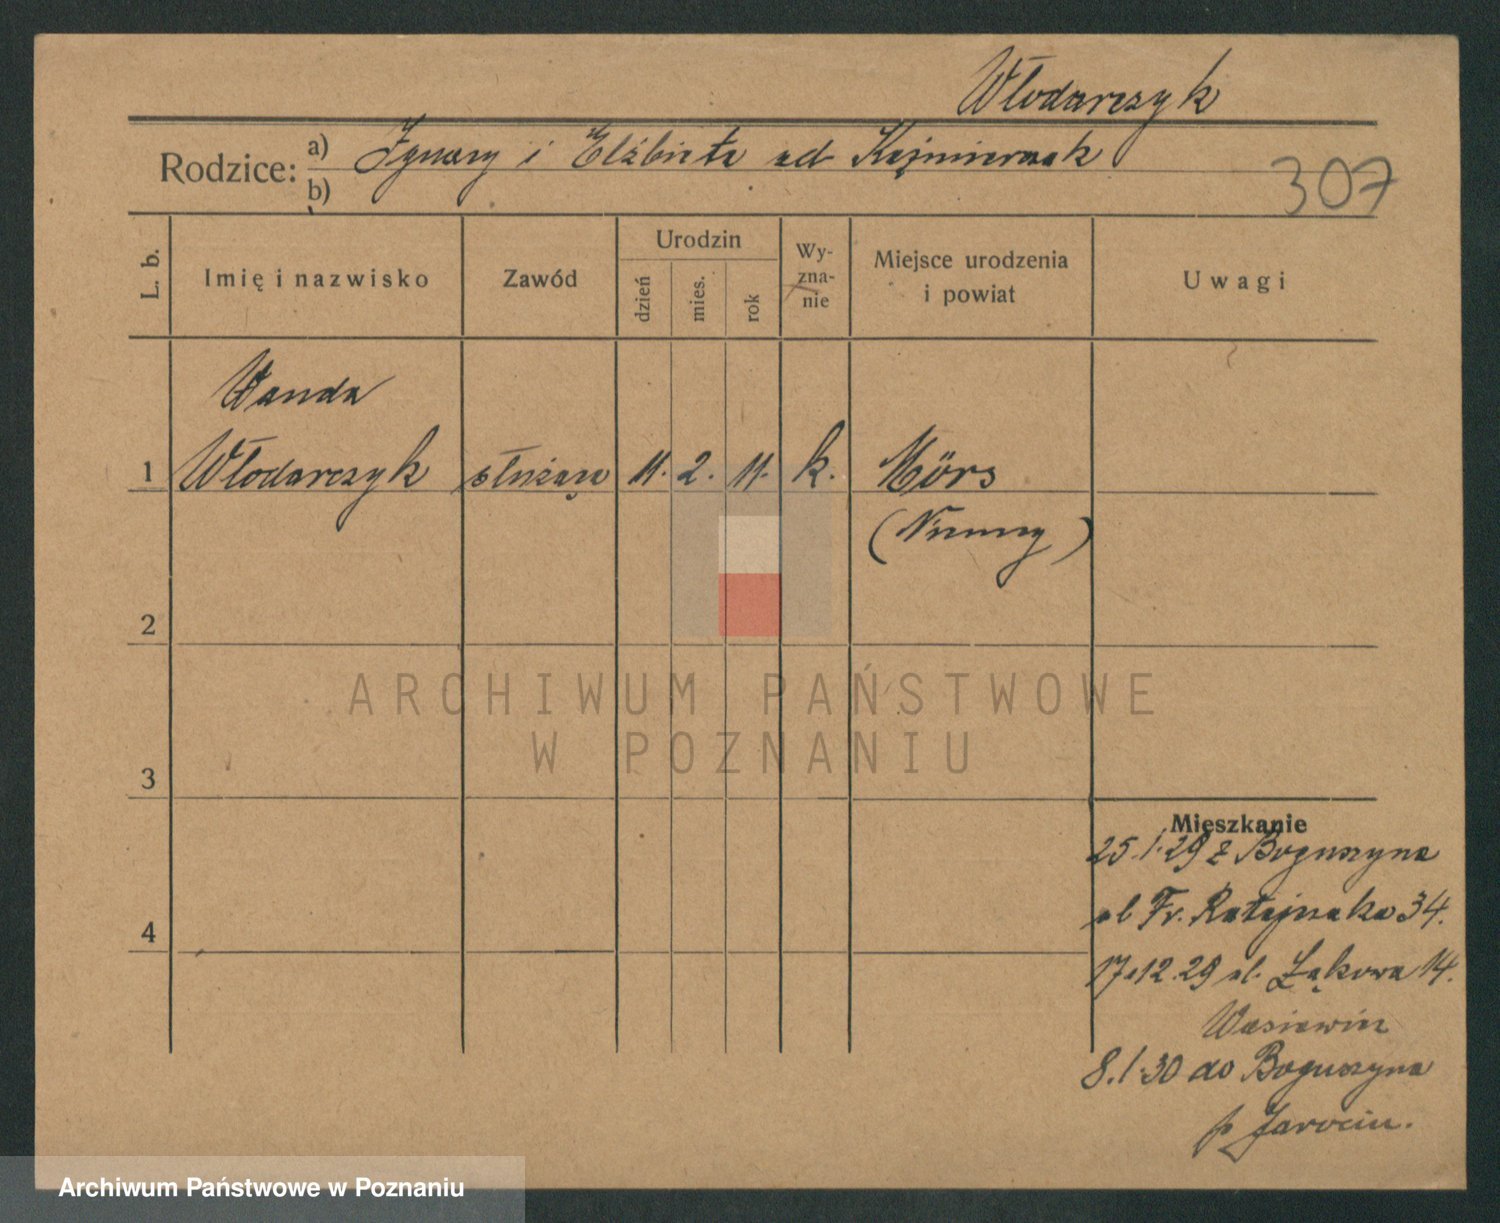 Włodarczyk
Rodzice: a) Ignacy i Elżbieta ud Kaźmierczak
b)
307
L. b.
Imię i nazwisko
Zawód
Urodzin
dzień
mies.
rok
Wy-
zna-
nie
Miejsce urodzenia
i powiat
Uwagi
Wanda
1 Włodarczyk służąca 11. 2. 11. k. Mörs
(Niemcy)
2
ARCHIWUM PAŃSTWOWE
W POZNANIU
3
Mieszkanie
25.1.29 z Boguszyna
ul Fr. Ratajczaka 34.
4
17.12.29 ul. Łąkowa 14.
8.1.30 do Boguszyna
p Jarocin.
Archiwum Państwowe w Poznaniu